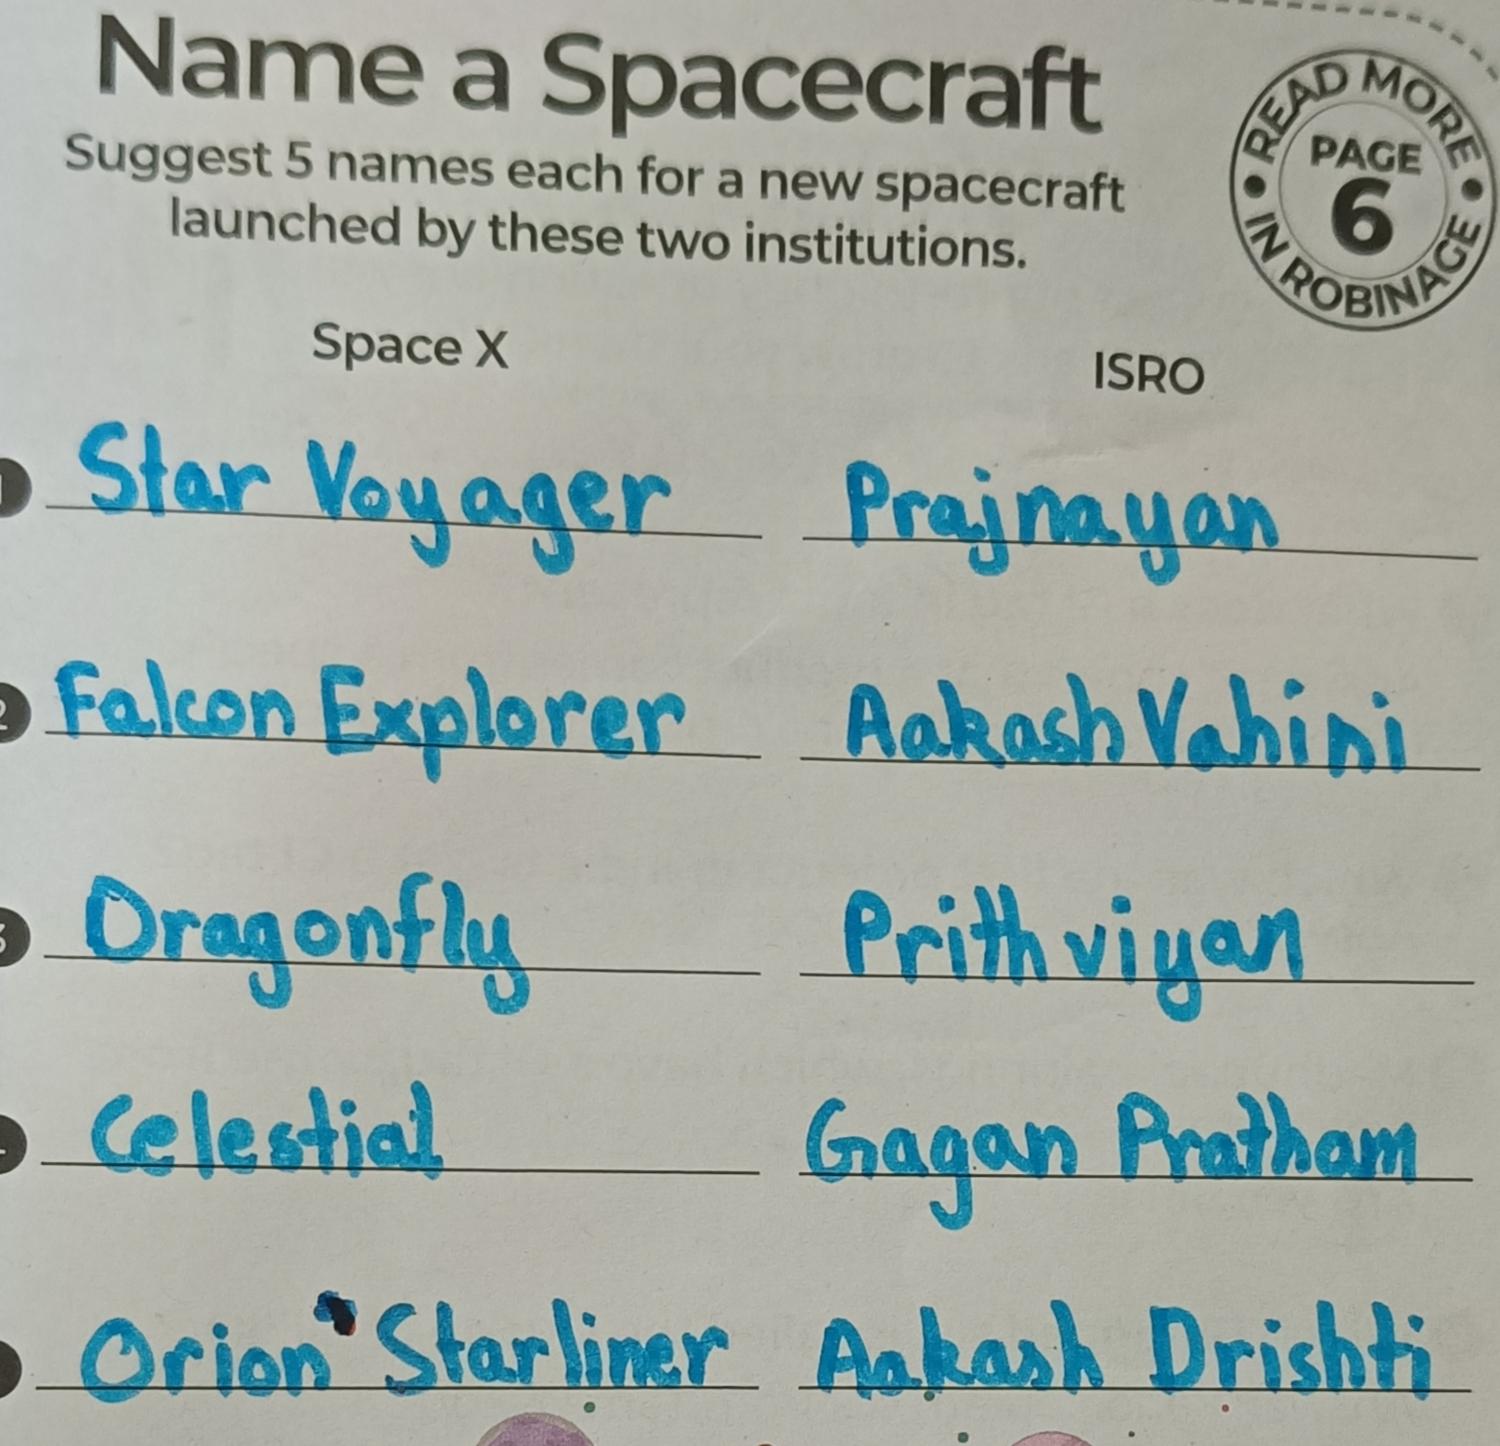 Name a Spacecraft
Suggest 5 names each for a new spacecraft
launched by these two institutions.
READ MORE
PAGE
6
IN ROBINAGE
Space X
ISRO
Star Voyager
Prajnayan
2 Falcon Explorer
Aakash Vahini
Dragonfly
Prithviyan
Celestial
Gagan Pratham
Orion Starliner
Aakash Drishti